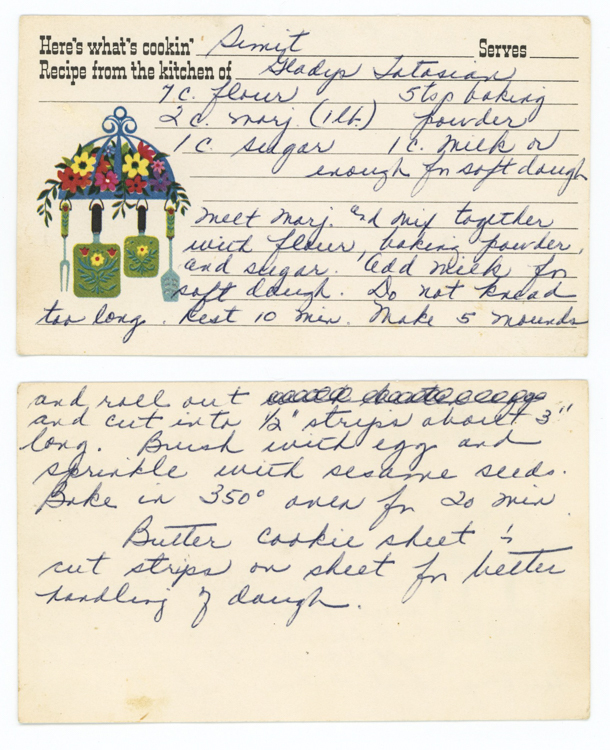 Here's what's cookin' Simit Serves
Recipe from the kitchen of Gladys Tatosian
7 c. flour 5 tsp baking
2 c. marj. (1 lb.) powder
1 c. sugar 1 c. milk or
enough for soft dough
Melt marj. and mix together
with flour, baking powder,
and sugar. Add milk for
soft dough. Do not knead
too long. Rest 10 min. Make 5 mounds
and roll out
and cut into 1/2" strips about 3"
long. Brush with egg and
sprinkle with sesame seeds.
Bake in 350° oven for 20 min
Butter cookie sheet &
cut strips on sheet for better
handling of dough.